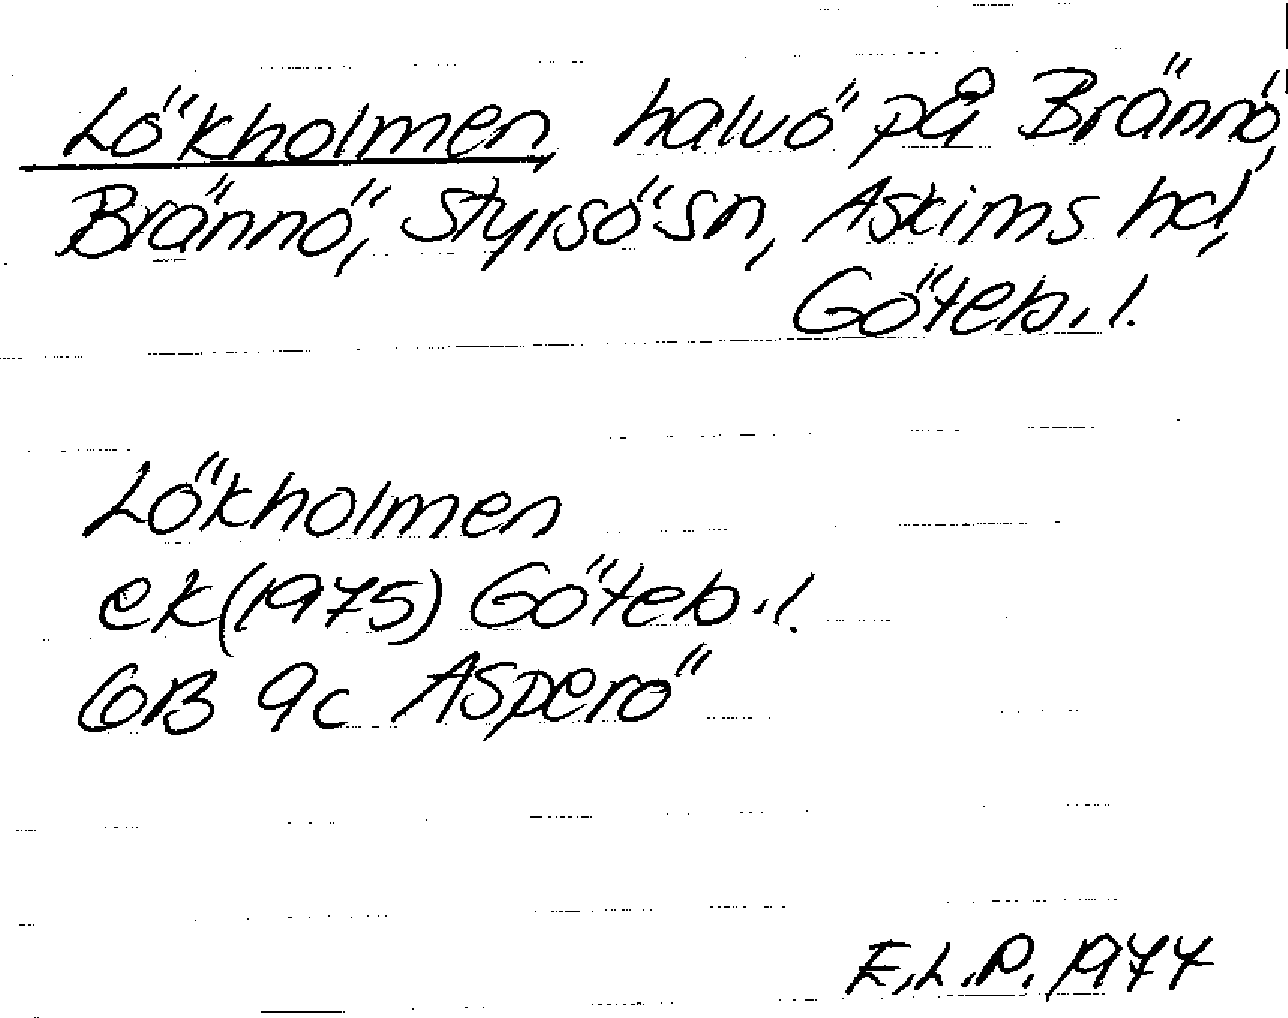 Lökholmen, halvö på Brännö,
Brännö, Styrsö sn, Askims hd,
Göteb. l.
Lökholmen
ek (1975) Göteb. l.
6B 9c Asperö
E.L.P. 1977